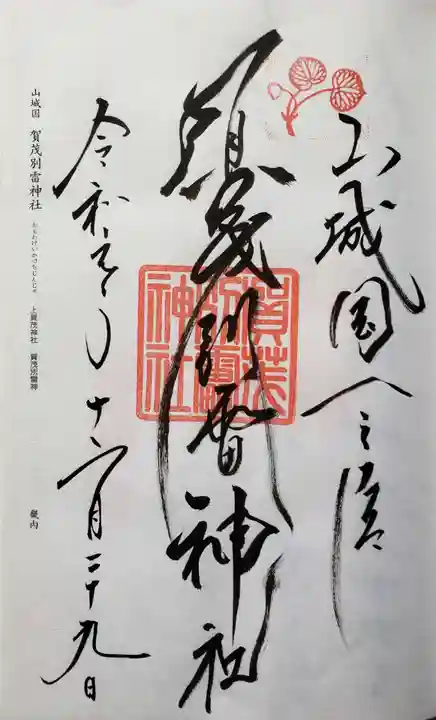 山城国一之宮
賀茂別雷神社
賀茂
別雷
神社
令和 十 月二十九日
山城国 賀茂別雷神社 かもわけいかづちじんじゃ 上賀茂神社 賀茂別雷神 畿内